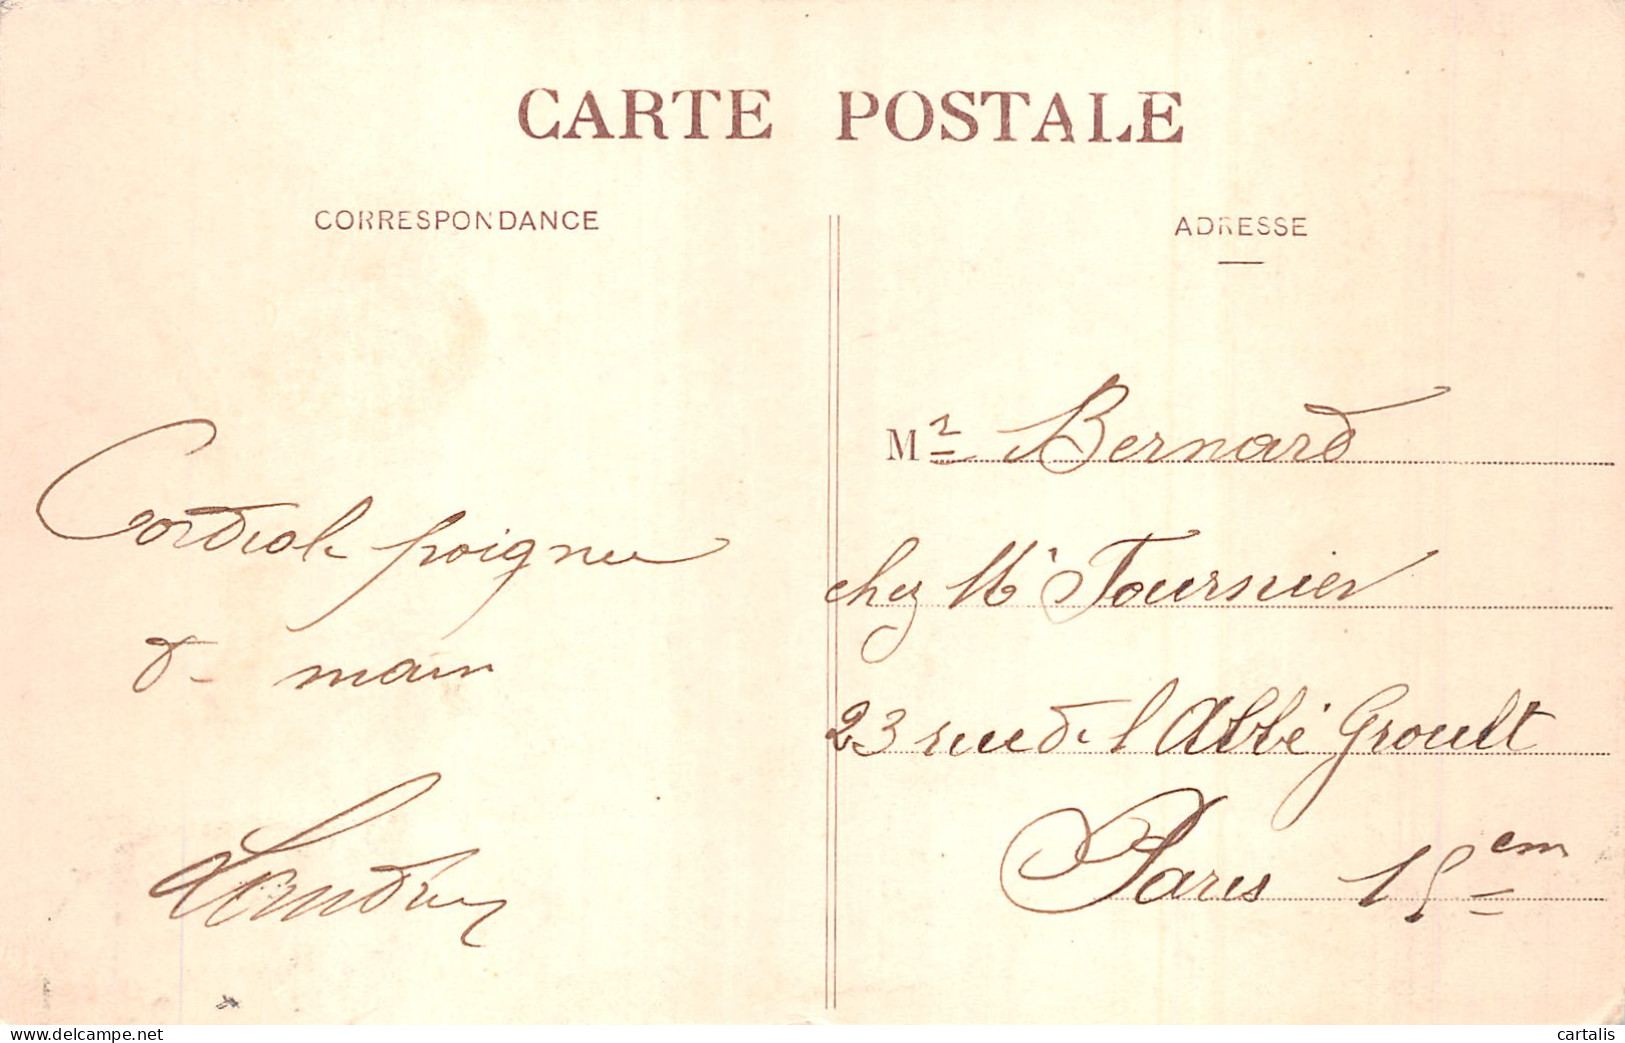 CARTE POSTALE
CORRESPONDANCE
Cordiale poignee
de main
ADRESSE
Mr Bernard
chez Mr Fournier
23 rue de l'Abbé Groult
Paris 15em
www.delcampe.net
cartalis